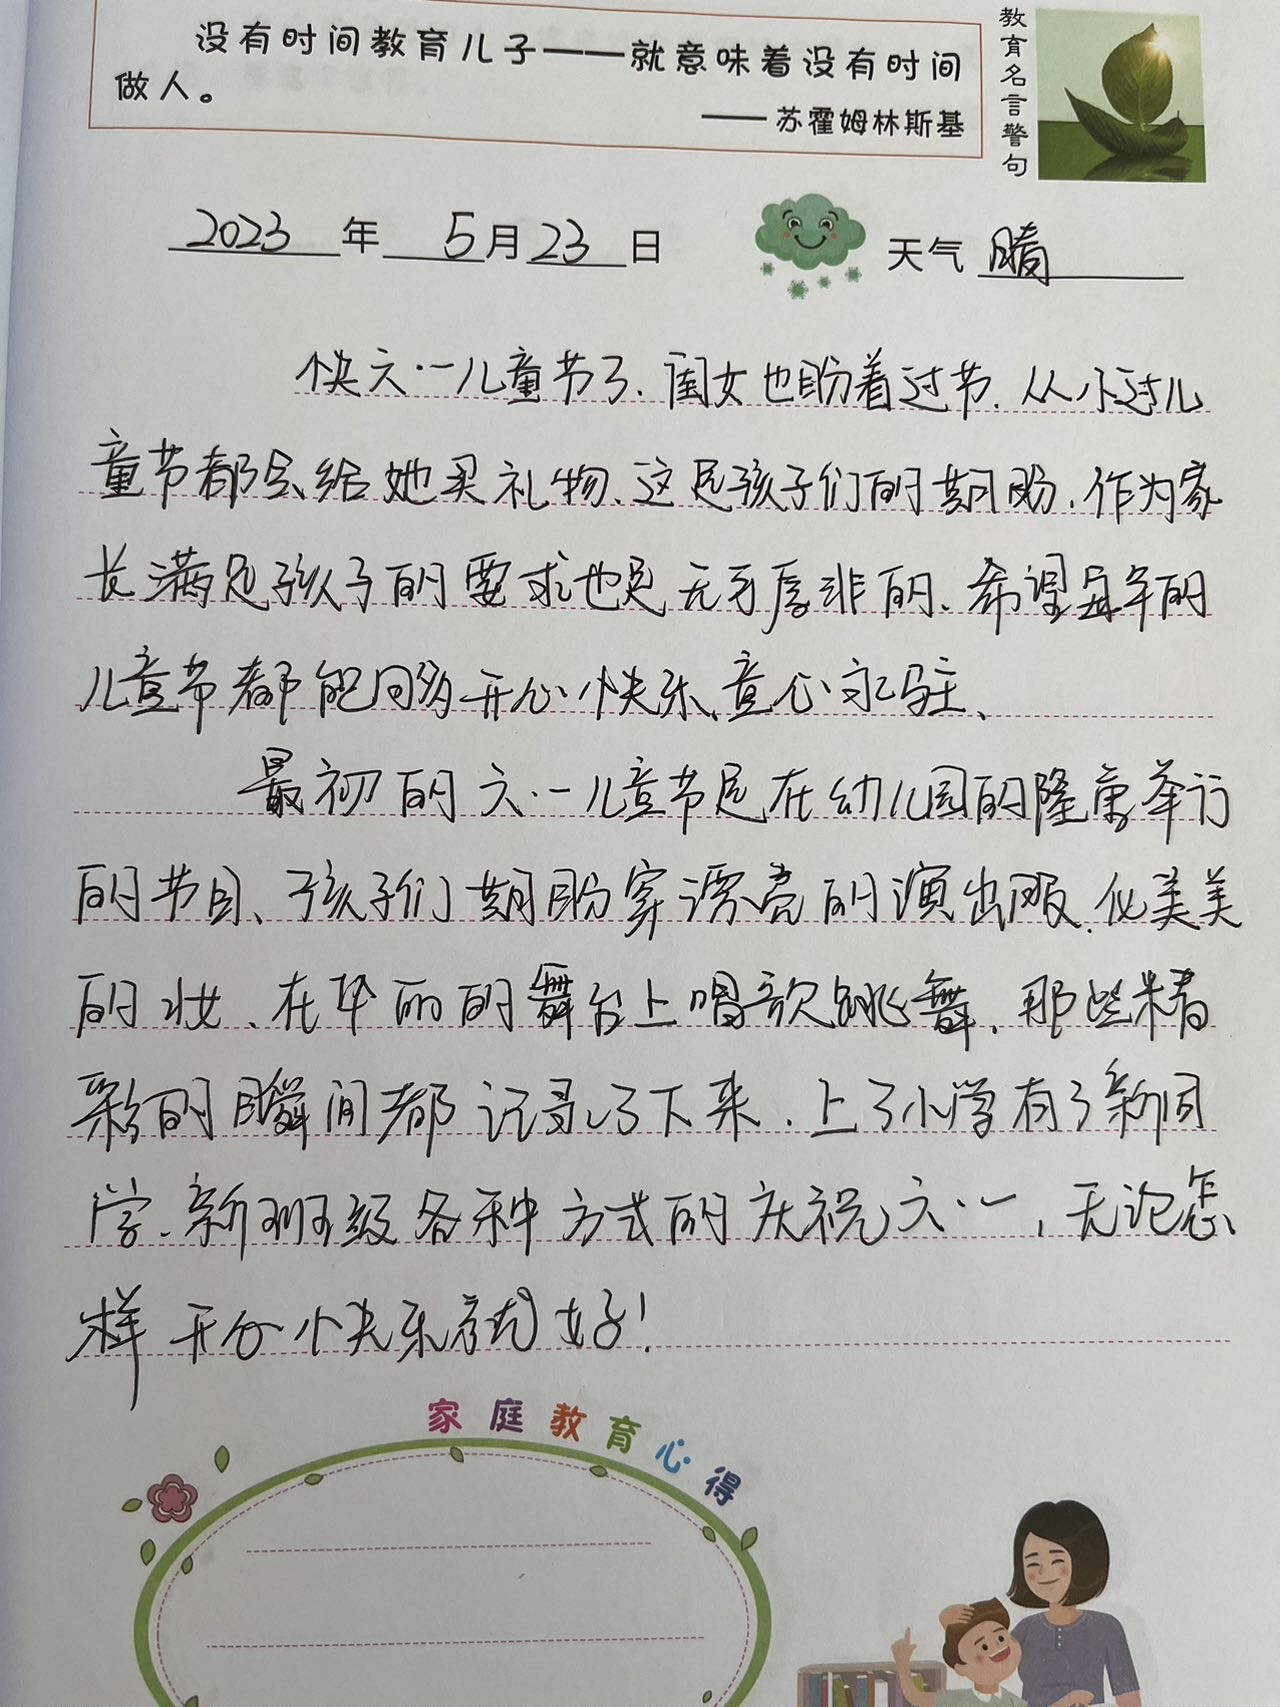 没有时间教育儿子——就意味着没有时间
做人。
——苏霍姆林斯基
教育名言警句
2023年5月23日 天气 晴
快六·一儿童节了.闺女也盼着过节.从小过儿
童节都会给她买礼物、这是孩子们的期盼.作为家
长满足孩子的要求也是无可厚非的、希望每年的
儿童节都能够开心快乐、童心永驻、
最初的六·一儿童节是在幼儿园的隆重举行
的节目、孩子们期盼穿漂亮的演出服.化美美
的妆、在华丽的舞台上唱歌跳舞、那些精
彩的瞬间都记录了下来.上了小学有了新同
学.新班级各种方式的庆祝六·一,无论怎
样开心快乐就好!
家庭教育心得